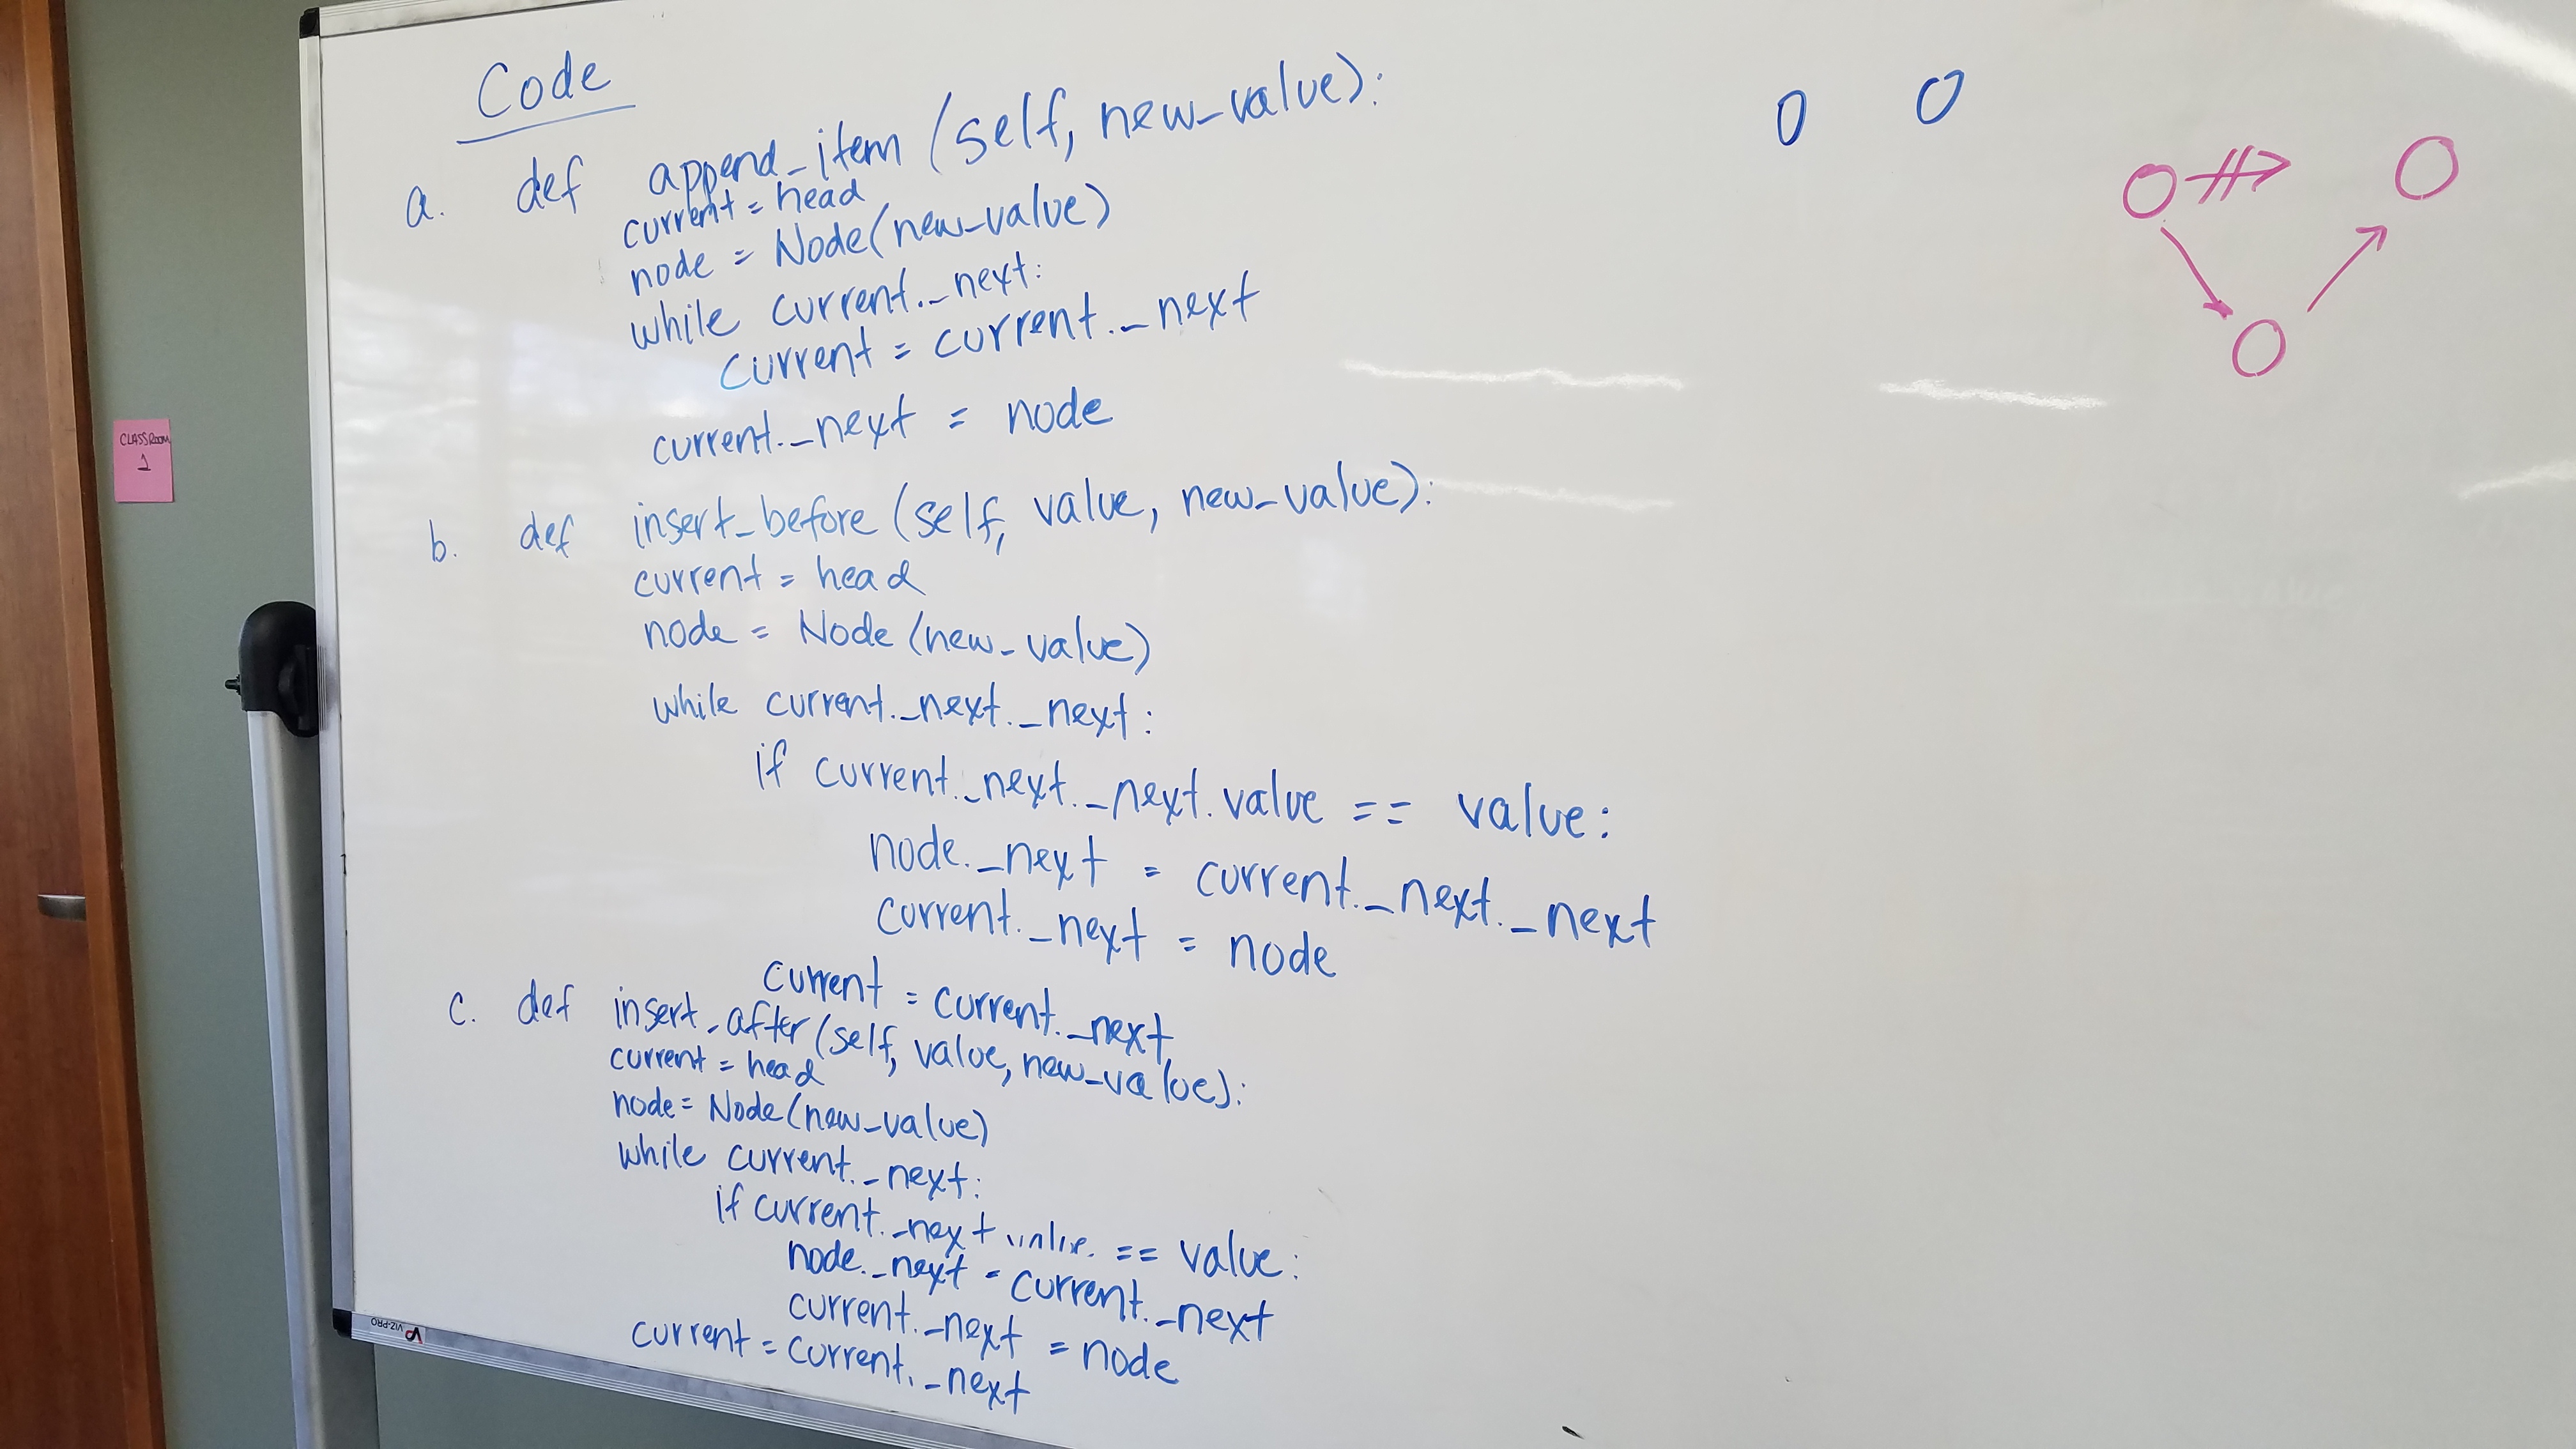 Code
a. def append_item (self, new_value):
current = head
node = Node(new_value)
while current._next:
current = current._next
current._next = node
b. def insert_before (self, value, new_value):
current = head
node = Node (new_value)
while current._next._next:
if current._next._next.value == value:
node._next = current._next._next
current._next = node
current = current._next
c. def insert_after (self, value, new_value):
current = head
node = Node(new_value)
while current._next:
if current._next == value:
node._next = current._next
current._next = node
current = current._next
CLASSROOM
1
VIZ-PRO